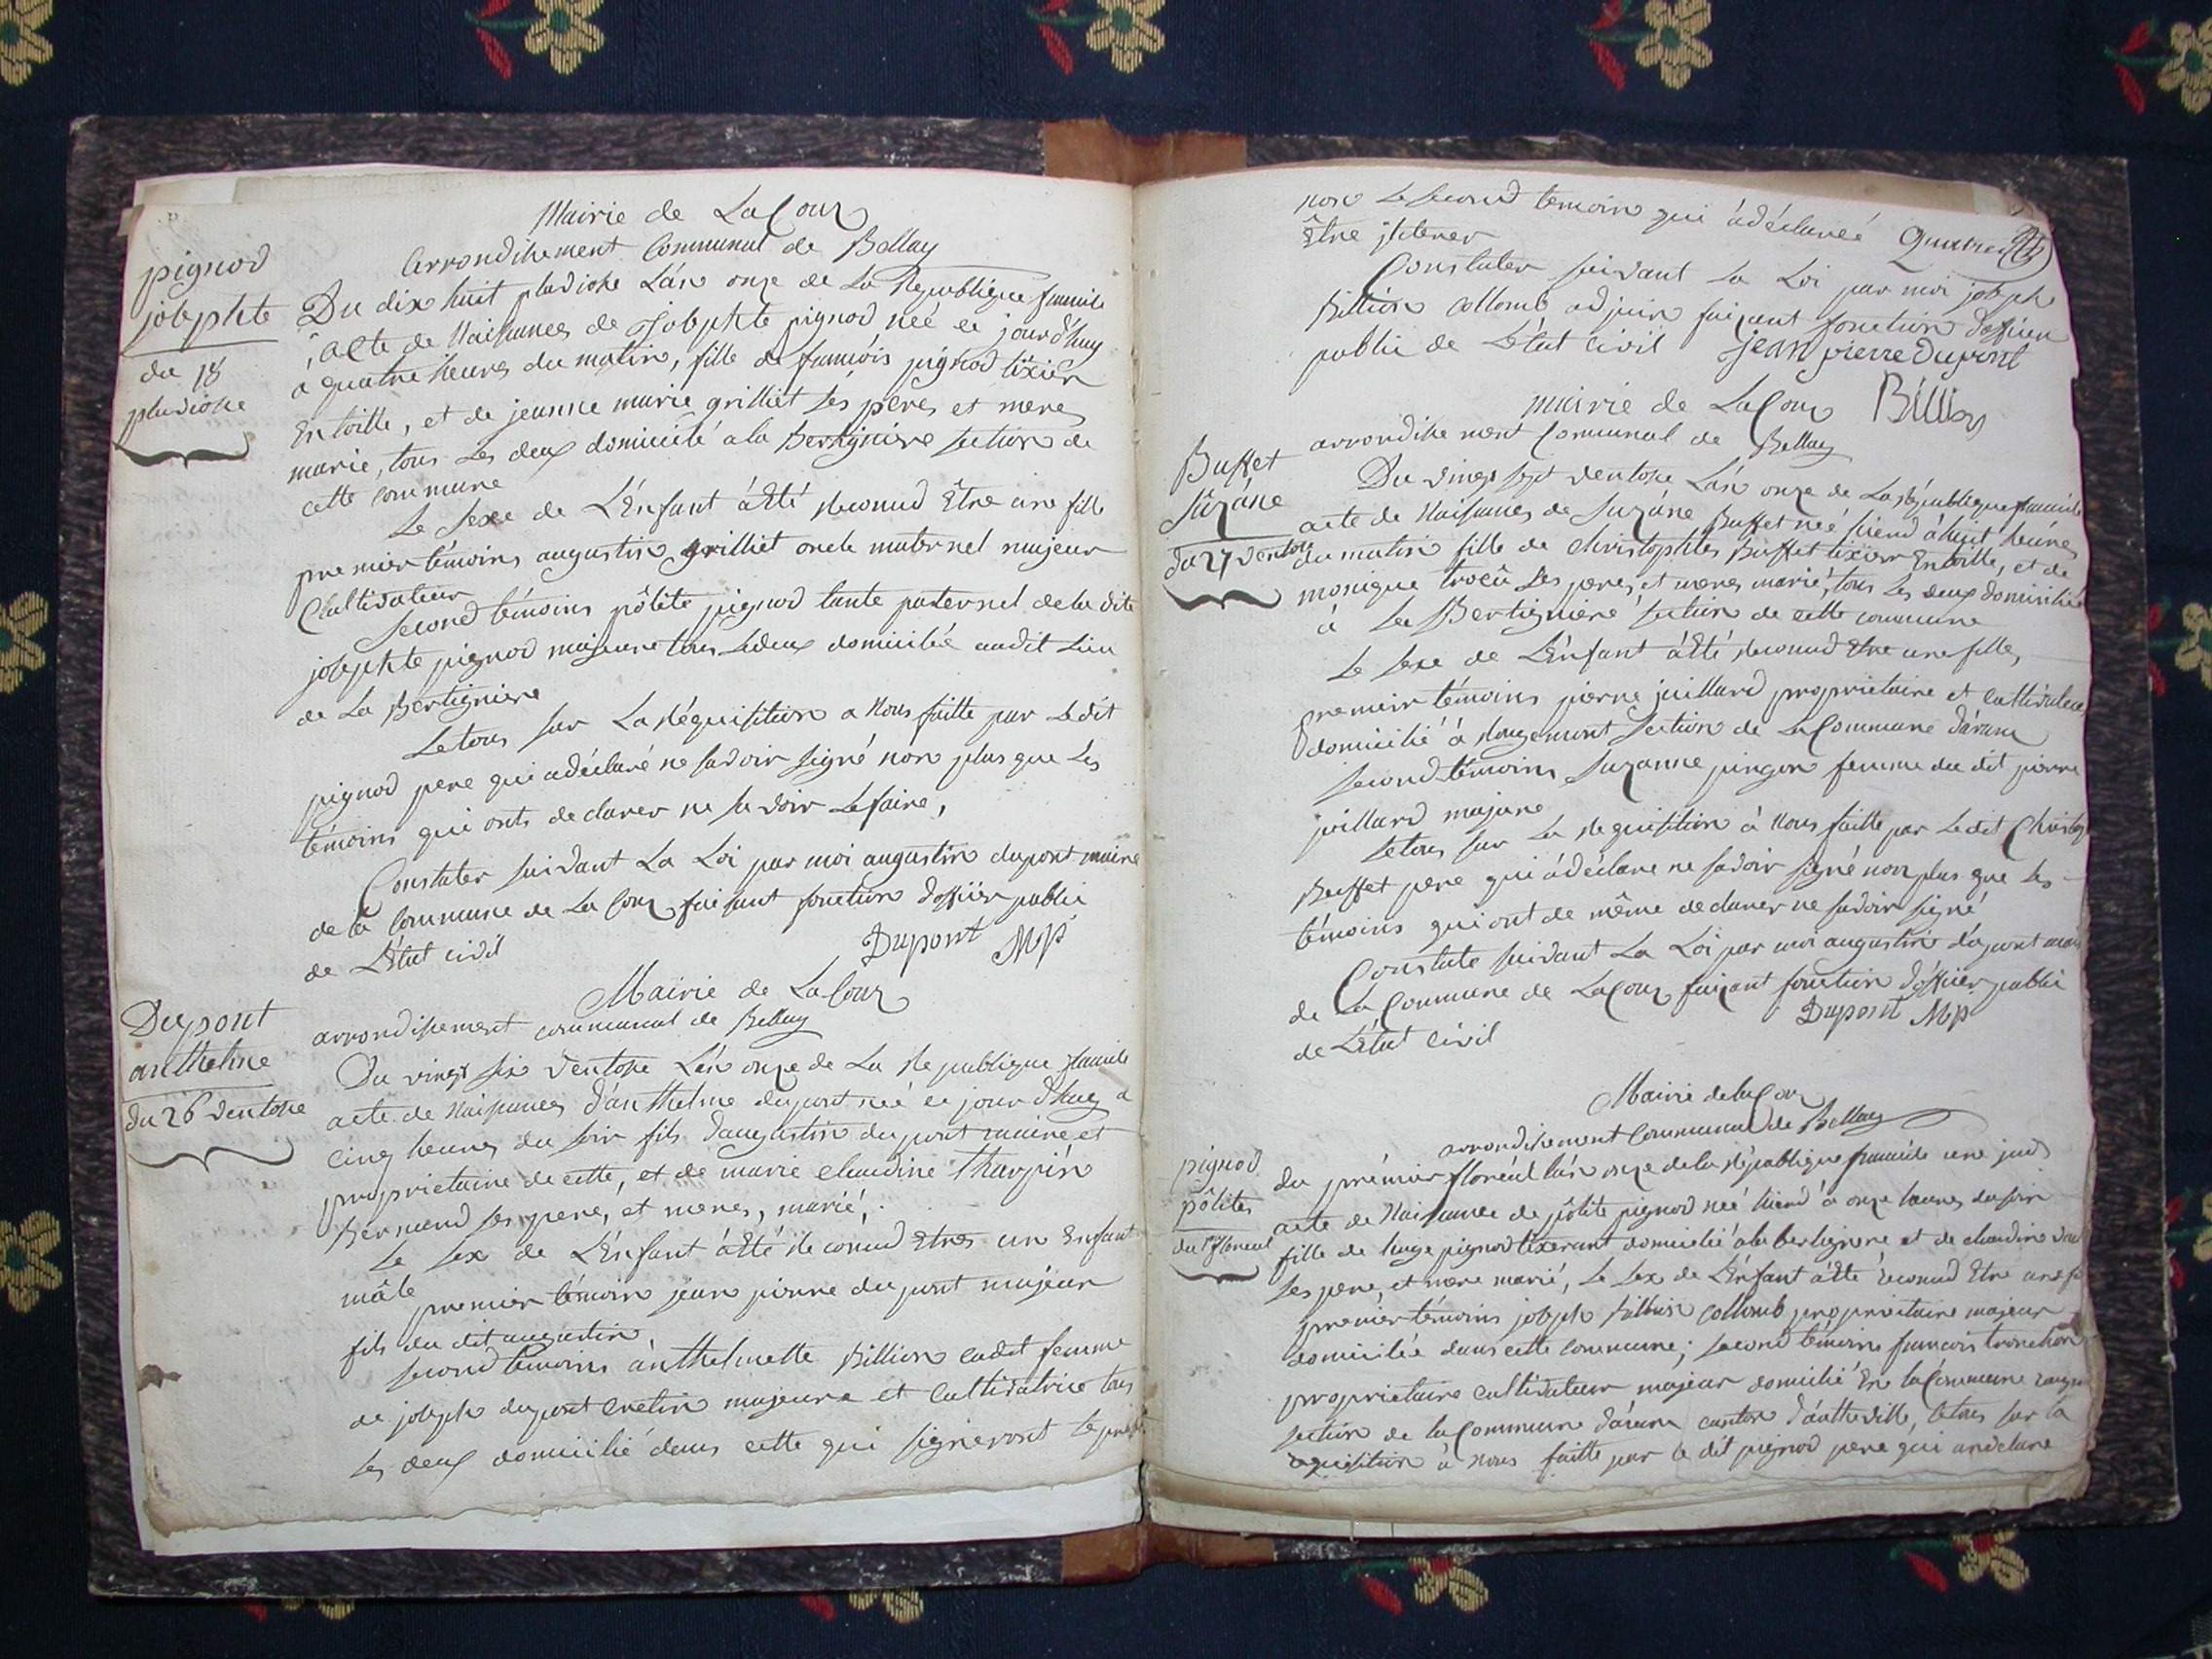 Mairie de La Coux
arrondissement Communal de Bellay
pignod
josephte
du 18
pluviose
Du dix huit pluviose L'an onze de La Republique francaise
acte de Naissances de Josephte pignod neé ce jour d'huy
à quatre heures du matin, fille de francois pignod tixier
En toille, et de jeanne marie grilliet ses peres et meres
marie, tous Les deux domicilié a la Bertigniere section de
cette commune
Le sexe de L'Enfant à Eté reconnud Être une fille
premier témoins augustin grilliet oncle maternel majeur
Cultivateur
second témoins pôlite pignod tante paternel de la dite
josephte pignod majeure tous Ledeux domicilié audit Lieu
de La Bertigniere
Letous sur La réquisition a Nous faitte par Ledit
pignod pere qui adéclaré ne savoir signé non plus que Les
témoins qui onts declarer ne savoir Lefaire,
Constater suivant La Loi par moi augustin dupont maire
de la Commune de La Coux faisant fonction d'offiier public
de L'Etat civil
Dupont Mp
Mairie de La Coux
arrondissement communal de Bellay
Dupont
anthelme
du 26 ventose
Du vingt six ventose L'an onze de La Republique francaise
acte de Naissances d'anthelme dupont né ce jour d'huy a
cinq heures du soir fils d'augustin dupont maire et
proprietaire de cette, et de marie claudine Tharpin
Bernand ses pere, et meres, marié,
Le sex de L'Enfant à Eté Reconud Etres un Enfant
mâle
premier témoin jean pierre dupont majeur
fils du dit augustin,
second temoins anthelmette Billion cadet femme
de joseph dupont cretin majeure et Cultivatrice tous
Les deux domicilié dans cette qui signeront Le
non Le second temoin qui à déclareé
Être jliterer
Constater suivant La Loi par moi joseph
Billion Collomb adjoin faisant fonction d'offiier
public de L'Etat civil
jean pierre Dupont
Billion
mairie de La Coux
arrondissement Communal de Bellay
Buffet
suzáne
du 27 ventose
Du vingt sept ventose L'an onze de La Republique francaise
acte de Naissances de suzáne Buffet neé hierd à huit heures
du matin fille de christophles Buffet tixier En toille, et de
monique ses peres, et meres marié, tous Les deux domicilié
à La Bertigniere section de cette commune
Le sexe de L'Enfant à Eté reconnud Etre une fille,
premier témoins pierre juillard proprietaire et cultivateur
domicilié à Rougemont section de La Commune d'aranc
second témoins suzanne pingon femme du dit pierre
juillard majure
Letous sur La requisition à Nous faitte par Ledit
Buffet pere qui à déclare ne savoir signé non plus que Les
témoins qui ont de même declarer ne savoir signé
Constate suivant La Loi par moi augustin dupont
de La Commune de La Coux faisant fonction d'offiier public
de L'Etat civil
Dupont Mp
Mairie de la Coux
arrondissement Communal de Bellay
pignod
pôlites
du 1er floreal
du prémier floréal L'an onze de la République francaise
acte de Naissance de pôlite pignod neé hierd à onze heures du soir
fille de huge pignod tixerant domicilié à la bertignere et de claudine
ses pere, et mere marié, Le sex de L'Enfant à Eté reconnud Etre une
premier témoins joseph Billion Collomb proprietaire majeur
domicilié dans cette commune; second témoins francois tronchon
proprietaire cultivateur majeur domicilié En la Commune
section de la Commune d'aranc canton d'autheville, Letous sur la
requisition à Nous faitte par le dit pignod pere qui